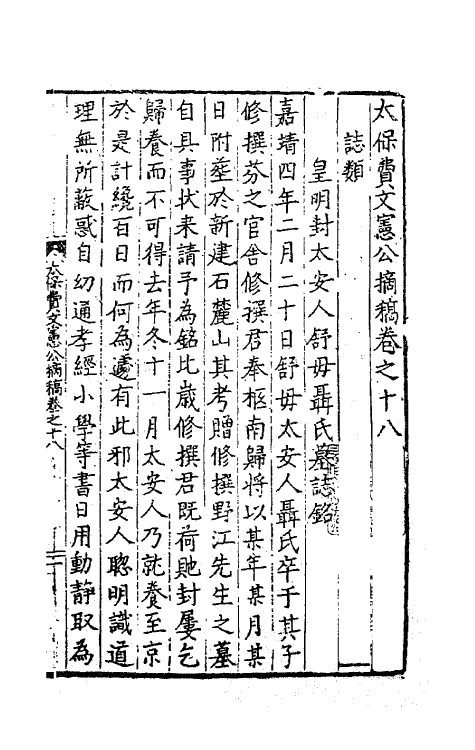 太保費文憲公摘稿卷之十八
誌類
皇明封太安人舒母聶氏墓誌銘
嘉靖四年二月二十日舒母太安人聶氏卒于其子
修撰芬之官舍修撰君奉柩南歸將以某年某月某
日附塟於新建石麓山其考贈修撰野江先生之墓
自具事状来請予為銘比歲修撰君既荷貤封屢乞
歸養而不可得去年冬十一月太安人乃就養至京
於是計纔百日而何為遽有此邪太安人聰明識道
理無所蔽惑自幼通孝經小學等書日用動靜取為
太保費文憲公摘稿卷之十八